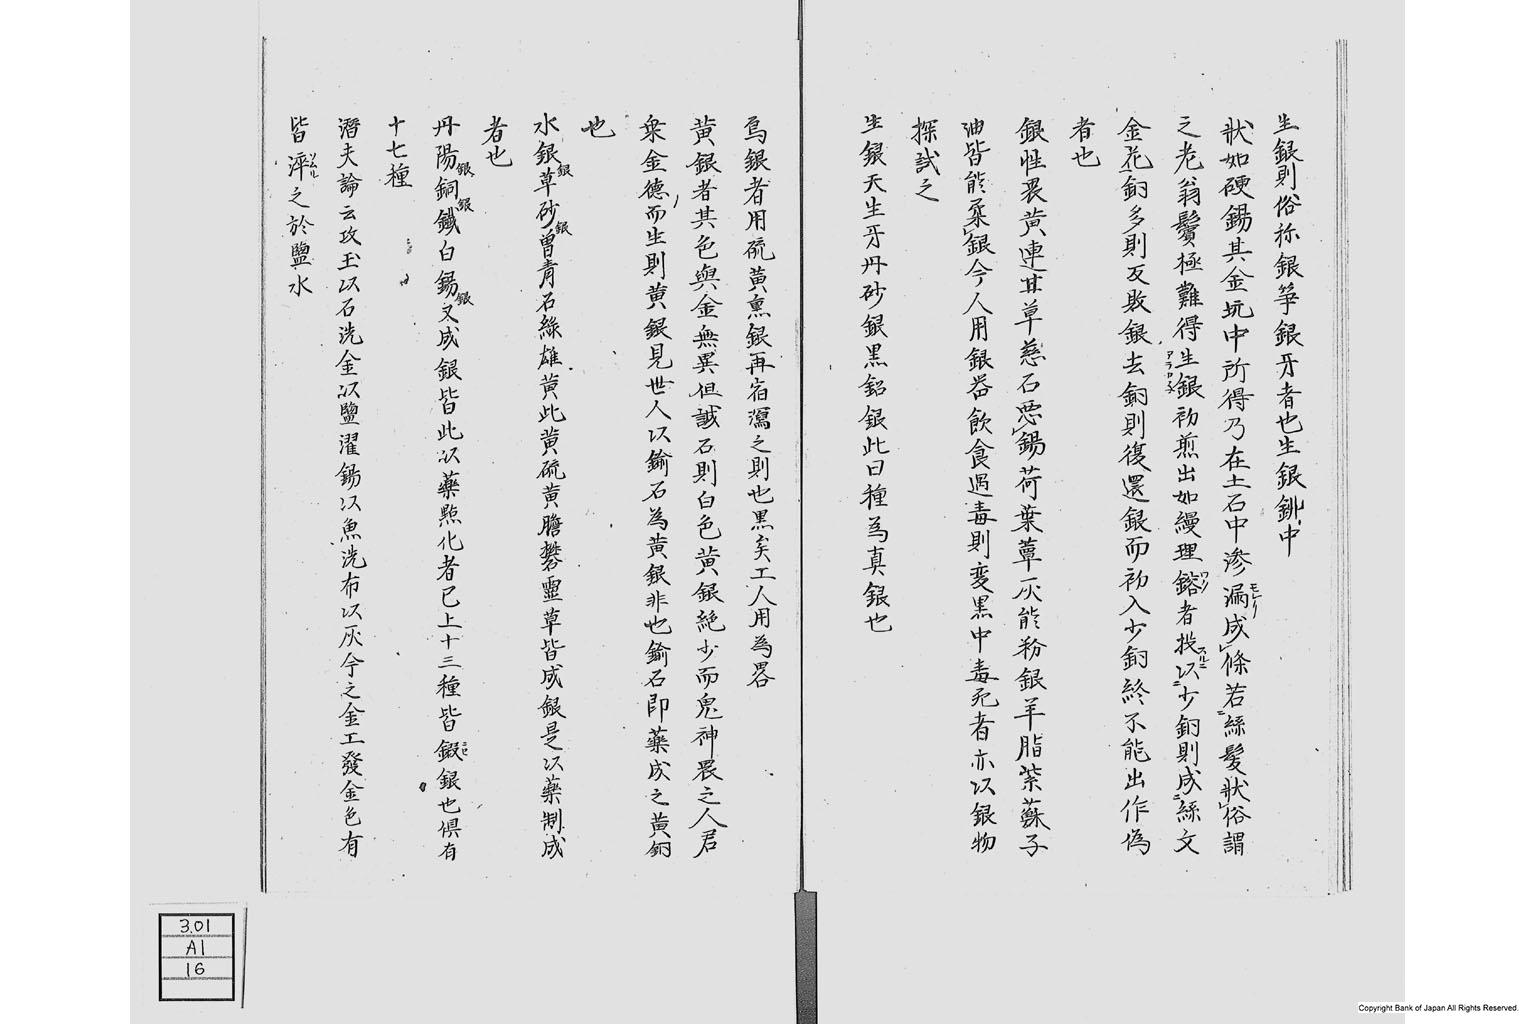 生銀則俗祢銀笋銀牙者也生銀鉚中
狀如硬錫其金坑中所得乃在土石中滲漏成條若絲髮狀俗謂
モレリ
之老翁鬚極難得生銀初煎出如縵理鎔者投以少銅則成絲文
金花銅多則反敗銀去銅則復還銀而初入少銅終不能出作偽
者也
銀性畏黄連甘草慈石惡錫荷葉蕈灰能粉銀羊脂紫蘇子
油皆能柔銀今人用銀器飲食遇毒則変黒中毒死者亦以銀物
探試之
生銀天生牙丹砂銀黒鉛銀此曰種為真銀也
烏銀者用硫黄熏銀再宿瀉之則也黒矣工人用為畧
黄銀者其色與金無異但試石則白色黄銀絶少而鬼神畏之人君
衆金德而生則黄銀見世人以鍮石為黄銀非也鍮石即藥成之黄銅
也
水銀銀草砂銀曽青石綠雄黄此黄硫黄膽礬靈草皆成銀是以藥制成
者也
丹陽銀銅銀鐵白錫銀又成銀皆此以藥點化者已上十三種皆錣銀也倶有
ニセ
十七種
潛夫論云攻玉以石洗金以鹽濯錫以魚洗布以灰今之金工發金色有
皆淬之於鹽水
3.01
A1
16
Copyright Bank of Japan All Rights Reserved.